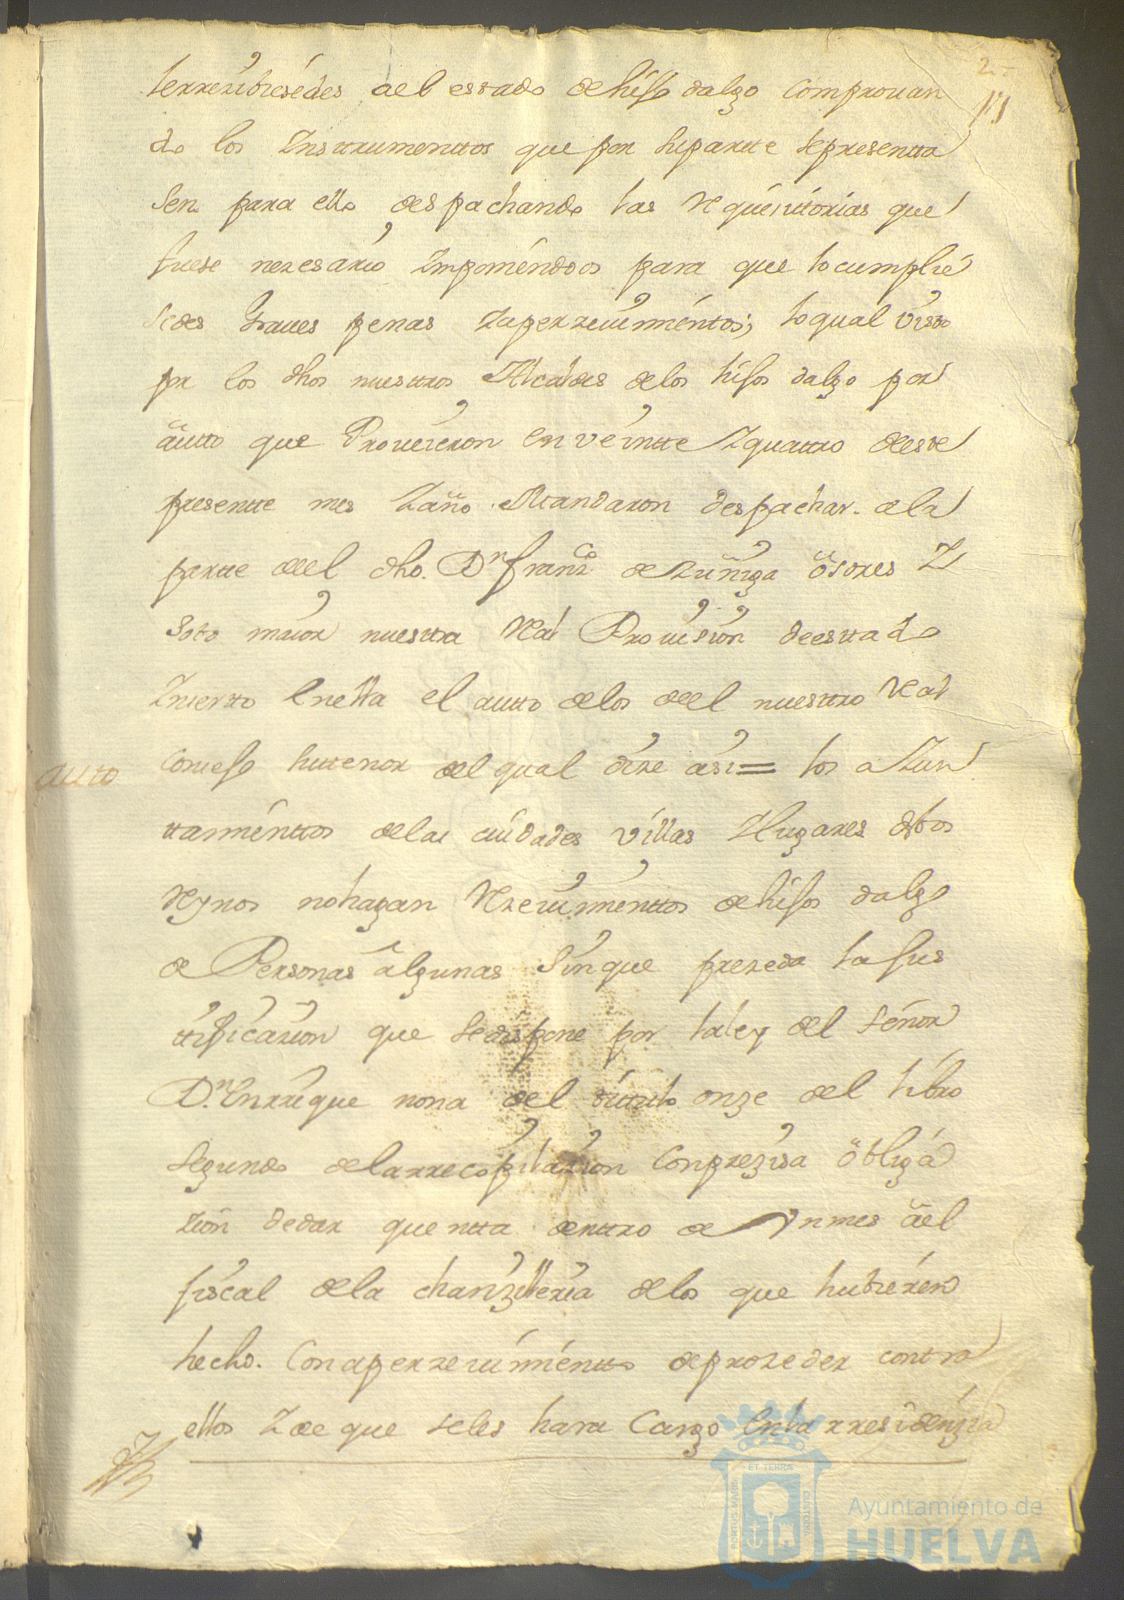 2
lerrezibiesedes a el estado de hijo dalgo comprouan
do los Instrumenttos que por su partte se presentta
sen para ello despachando las Requisitorias que
fuese nezesario Imponiendoos para que lo cumplie
sedes graues penas y aperzeuimientos; lo qual visto
por los dhos nuestros Alcaldes de los hijos dalgo por
autto que Proueieron en veintte y quattro de este
presentte mes y año Mandaron despachar a la
partte de el dho. Dn franco de zuñiga osores y
Soto maior nuestra Real Prouision de estado
Inserto en ella el autto de los de el nuestro Real
Consejo su tenor del qual dize asi = los a Iun
tamienttos de las ciudades villas y lugares destos
Reynos no hagan Rezeuimienttos de hijos dalgo
de Personas algunas sin que prezeda la jus
tificazion que se dispone por la ley del señor
Dn. Enrrique nona del titulo onze del libro
segundo de la rrecopilazion con prezisa obliga
zion de dar quentta dentro de Un mes a el
fiscal de la chanzilleria de los que hubieren
hecho. Con aperzeuimientto de prozeder contra
ellos y de que se les hara Cargo en la rresidenzia
auto
ET TERRÆ
PORTUS MARIS
CUSTODIA
Ayuntamiento de
HUELVA